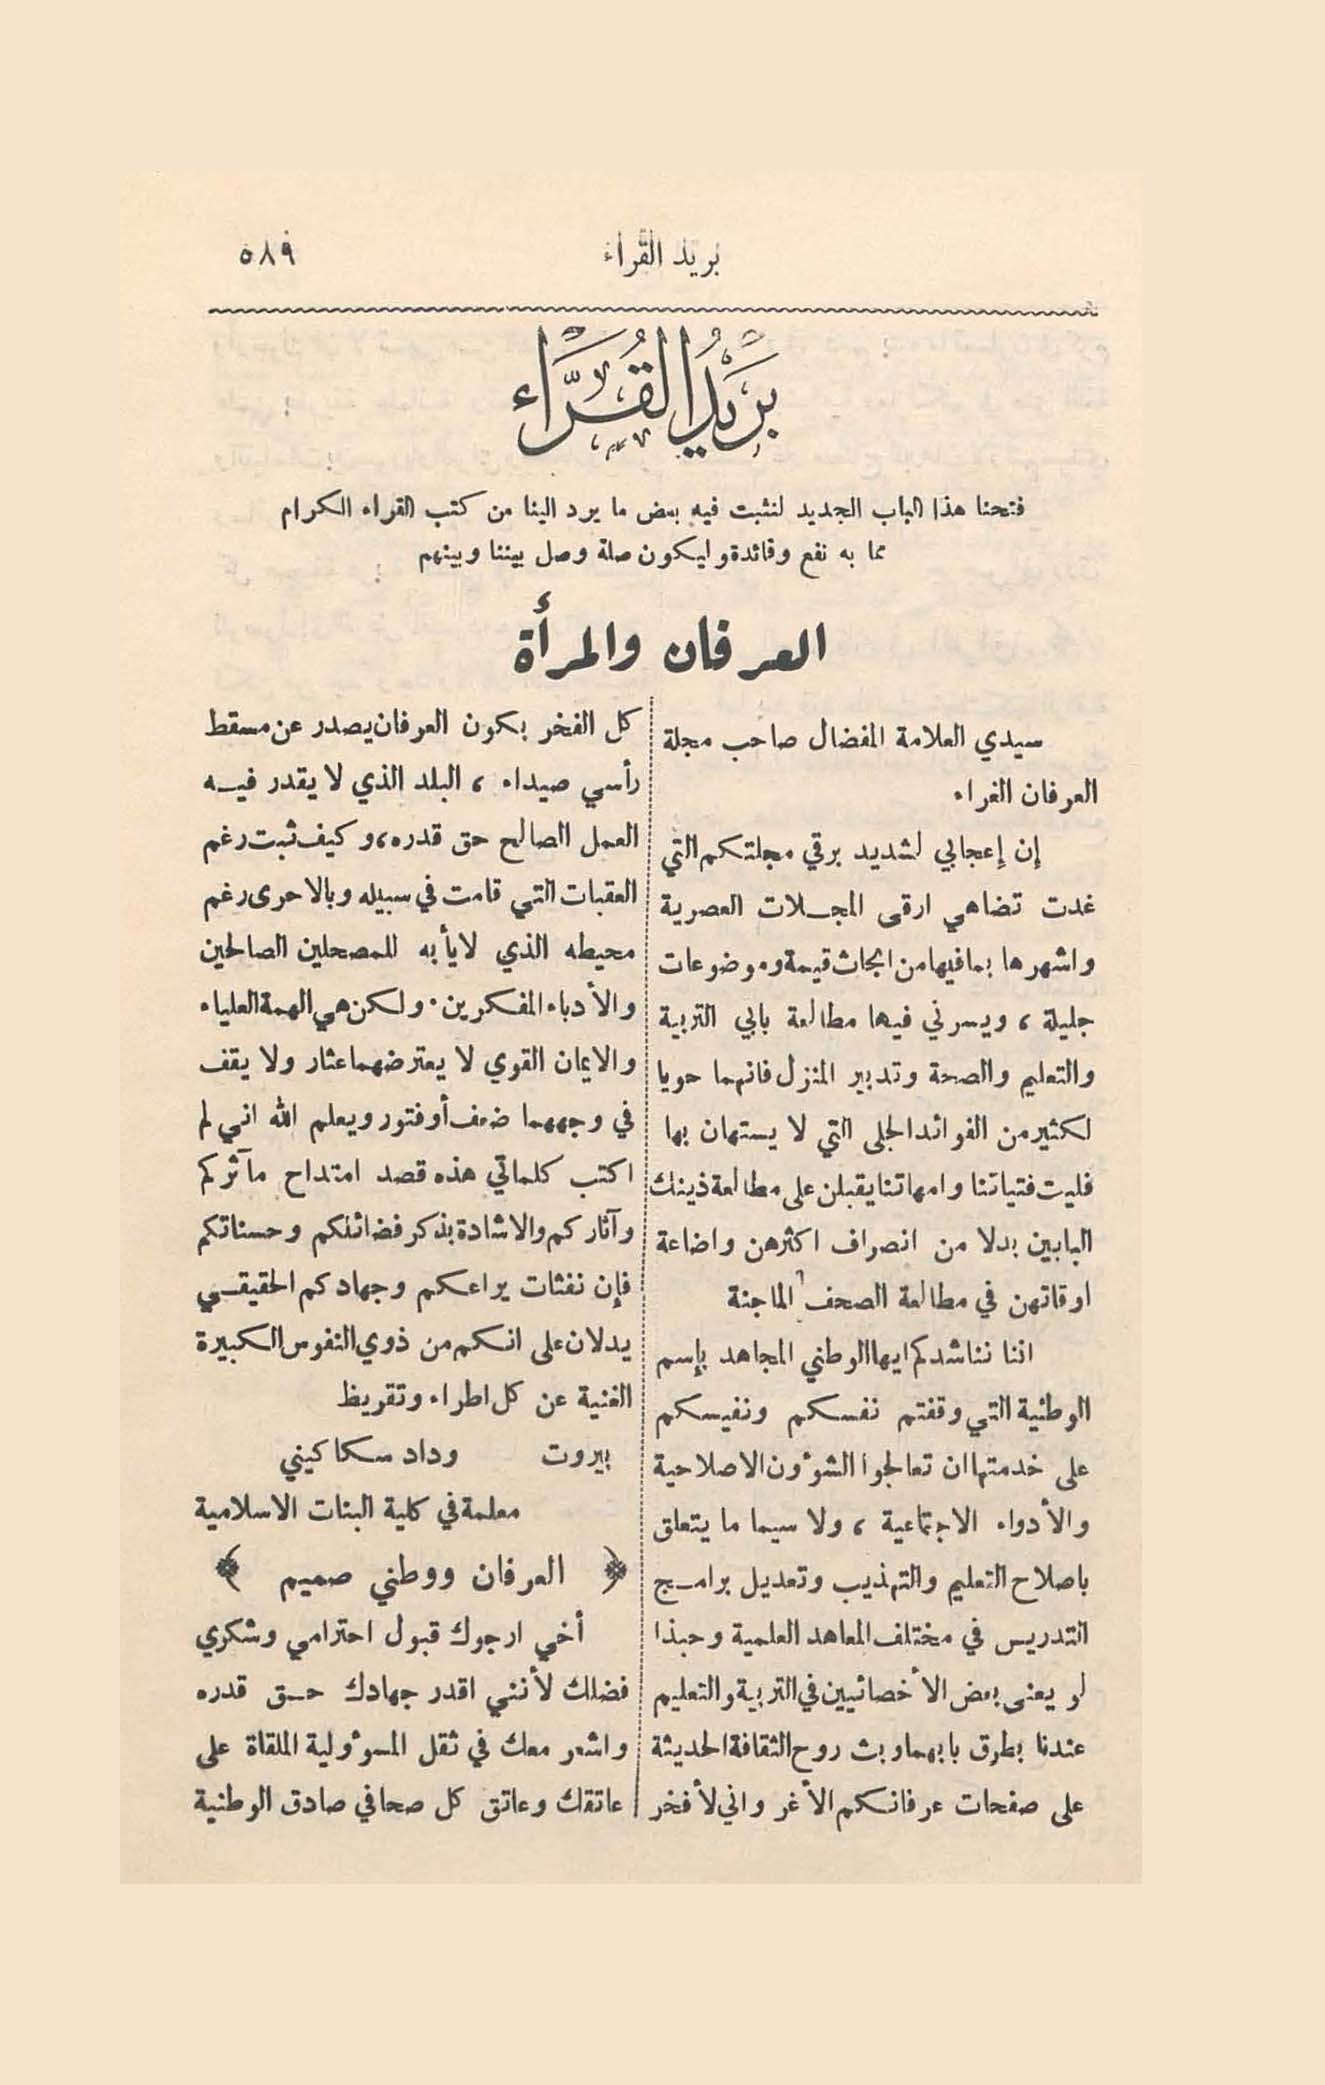 بريد القراء
٥٨٩
بَريدُ القُرَّاء
فتحنا هذا الباب الجديد لنثبت فيه بعض ما يرد الينا من كتب القراء الكرام
مما به نفع وفائدة وليكون صلة وصل بيننا وبينهم
العرفان والمرأة
سيدي العلامة المفضال صاحب مجلة
العرفان الغراء
إن إعجابي لشديد برقي مجلتكم التي
غدت تضاهي ارقى المجلات العصرية
واشهرها بما فيها من ابحاث قيمة وموضوعات
جليلة ، ويسرني فيها مطالعة بابي التربية
والتعليم والصحة وتدبير المنزل فانهما حويا
لكثير من الفوائد الجلى التي لا يستهان بها
فليت فتياتنا وامهاتنا يقبلن على مطالعة ذينك
البابين بدلا من انصراف اكثرهن واضاعة
اوقاتهن في مطالعة الصحف الماجنة
اننا نناشدكم ايها الوطني المجاهد بإسم
الوطنية التي وقفتم نفسكم ونفيسكم
على خدمتها ان تعالجوا الشوؤن الاصلاحية
والأدواء الاجتماعية ، ولا سيما ما يتعلق
باصلاح التعليم والتهذيب وتعديل برامج
التدريس في مختلف المعاهد العلمية وحبذا
لو يعنى بعض الأخصائيين في التربية والتعليم
عندنا بطرق بابهما وبث روح الثقافة الحديثة
على صفحات عرفانكم الأغر واني لأفخر
كل الفخر بكون العرفان يصدر عن مسقط
رأسي صيداء ، البلد الذي لا يقدر فيه
العمل الصالح حق قدره ، وكيف ثبت رغم
العقبات التي قامت في سبيله وبالاحرى رغم
محيطه الذي لا يأبه للمصحلين الصالحين
والأدباء المفكرين . ولكن هي الهمة العلياء
والايمان القوي لا يعترضهما عثار ولا يقف
في وجههما ضعف أو فتور ويعلم الله اني لم
اكتب كلماتي هذه قصد امتداح مآثركم
وآثاركم والاشادة بذكر فضائلكم وحسناتكم
فإن نفثات يراعكم وجهادكم الحقيقي
يدلان على انكم من ذوي النفوس الكبيرة
الغنية عن كل اطراء وتقريظ
بيروت وداد سكاكيني
معلمة في كلية البنات الاسلامية
﴿ العرفان ووطني صميم ﴾
أخي ارجوك قبول احترامي وشكري
فضلك لأنني اقدر جهادك حق قدره
واشعر معك في ثقل المسوؤلية الملقاة على
عاتقك وعاتق كل صحافي صادق الوطنية